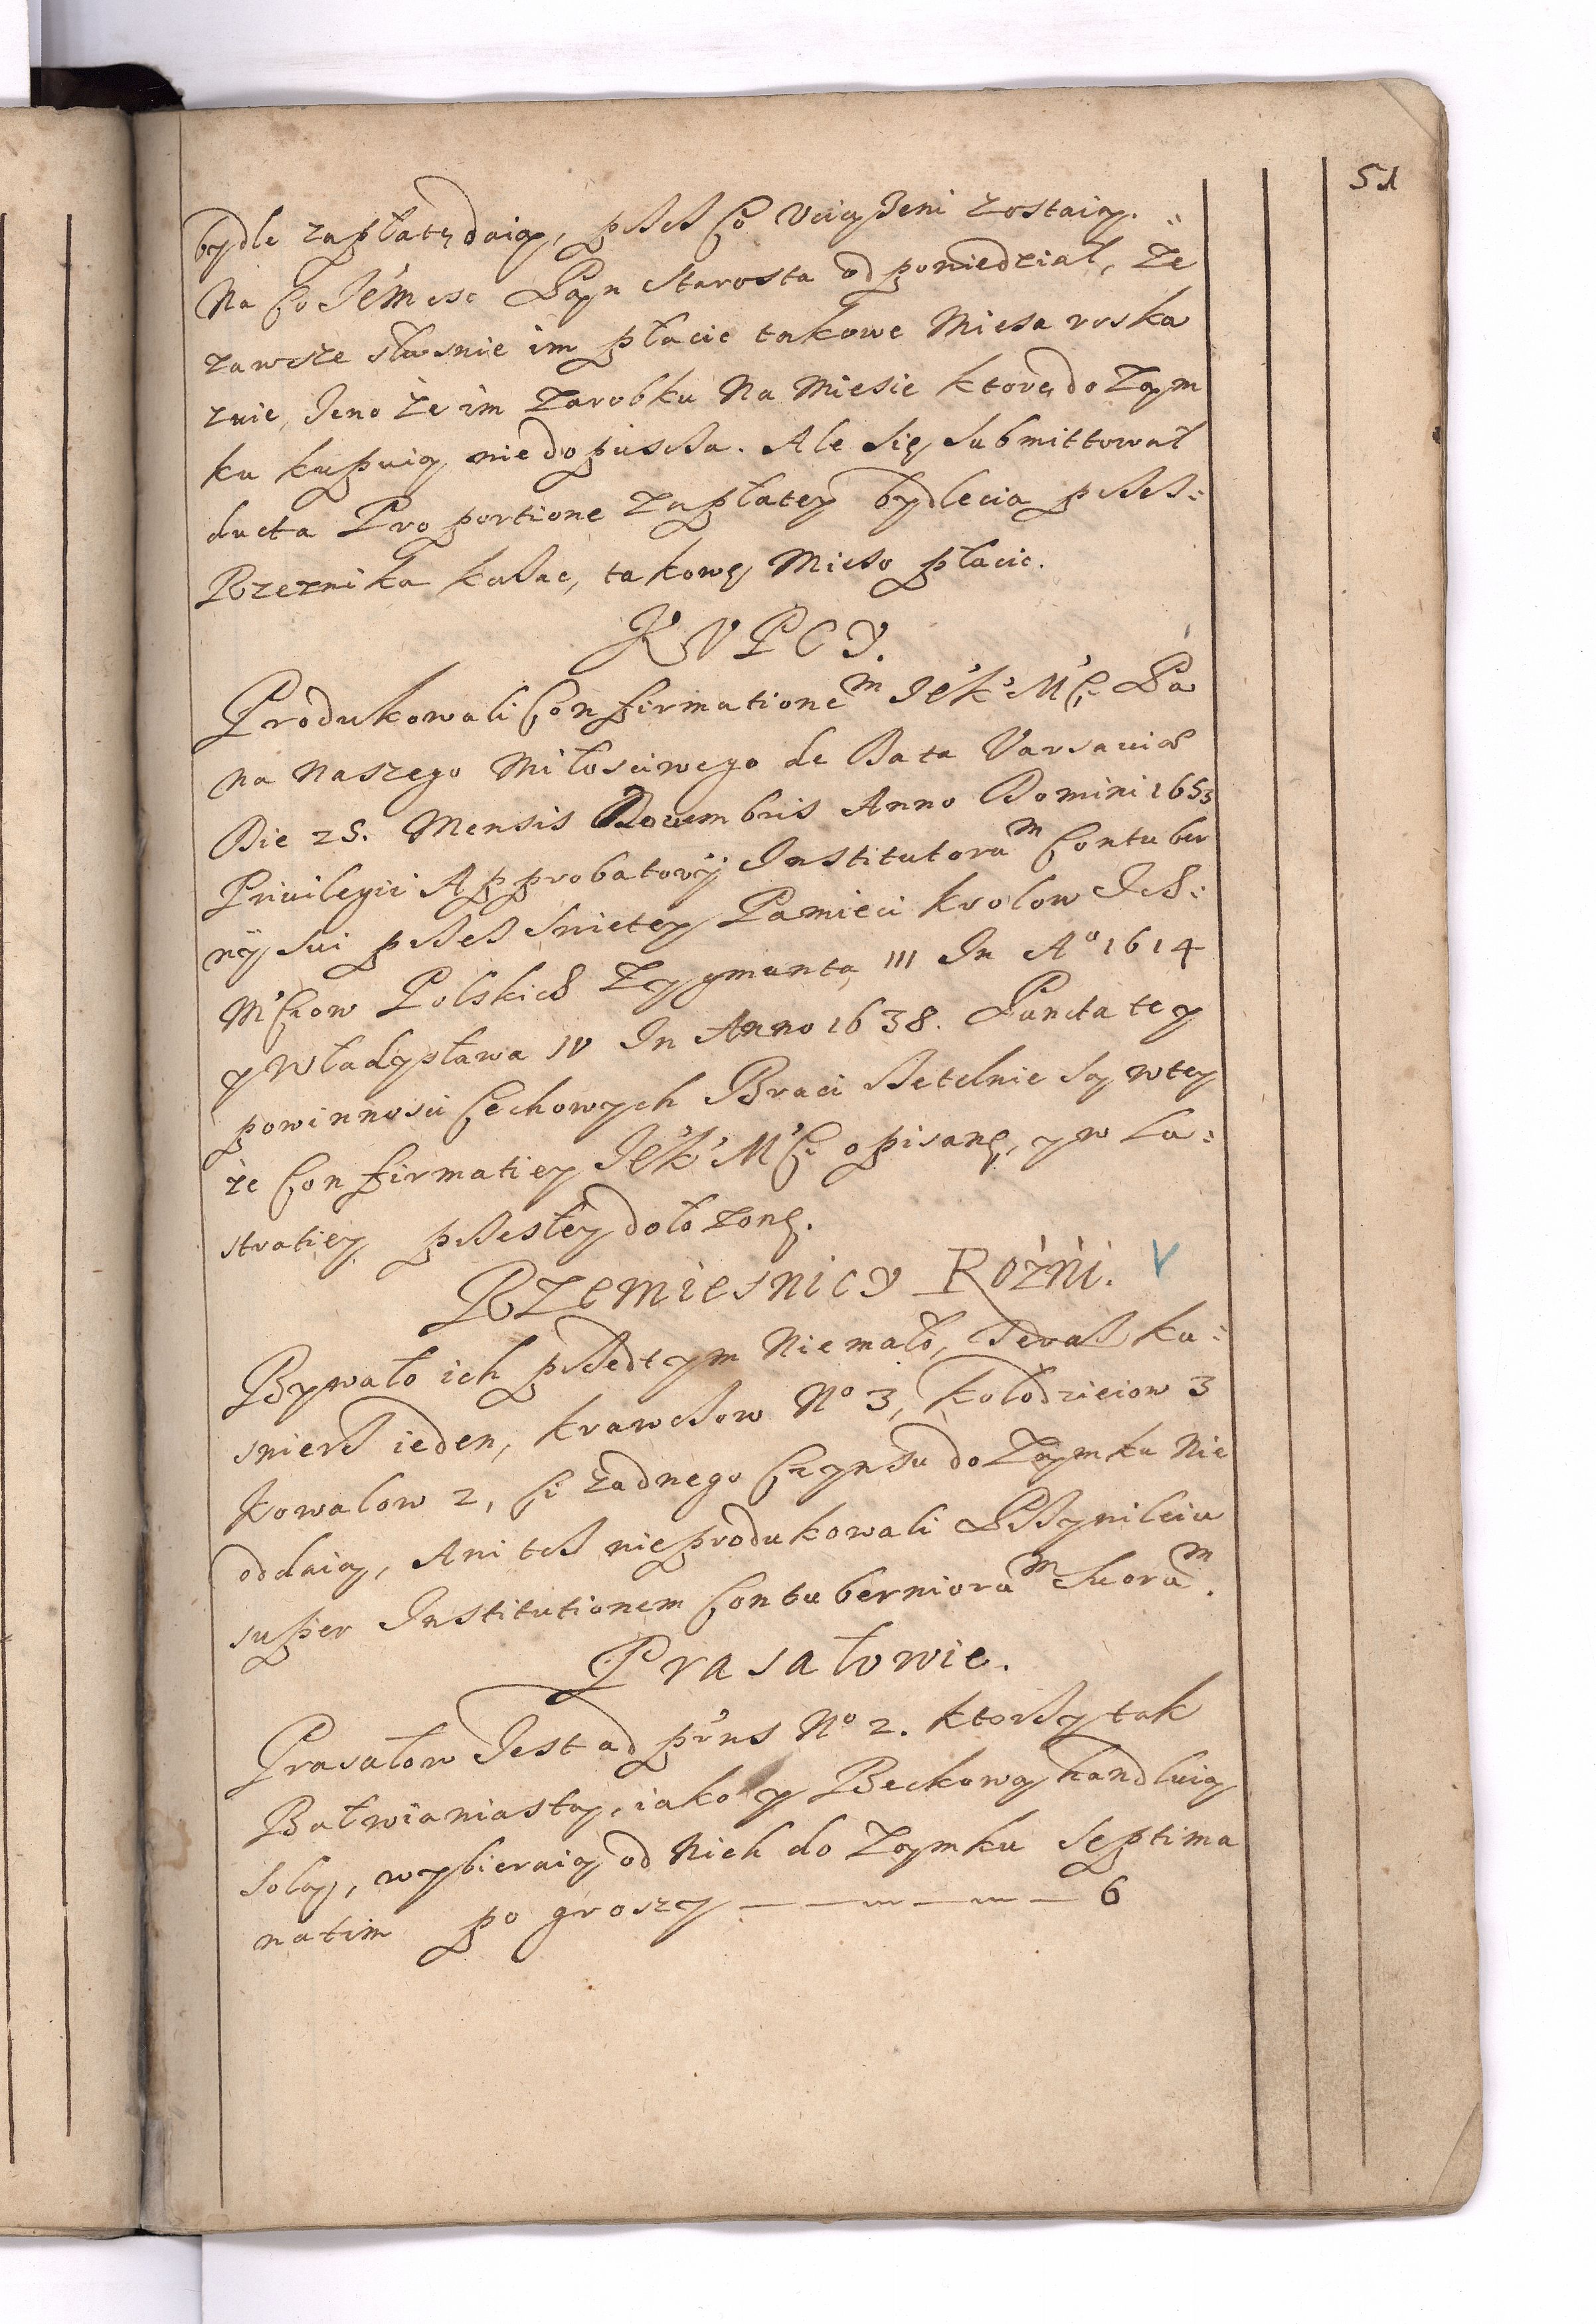 51
bydle zapłatę daią, pszes Co Vciąszeni zostaią.
Na Co Jem̃esc Pąn Starosta odpowiedział, że
zawsze słusnie im płacic takowe Miesa roska
zuie, Jeno że im zarobku Na Miesie ktorę do Ząm
ku kupuią niedopuscsa. Ale Się submittował
ducta Proportione zapłatey bydlecia pszes:
Rzeznika kasac, takowę Mieso płacic.
KVPCY.
Produkowali Confirmatione͂m Je͂k͂ M͂Ci Pa
na Naszego Miłosciwego de Data Varsauiæ
Die 25. Mensis Decembris Anno Domini 1653
Priuilegii Approbatorÿ Institutorũm Contuber
nÿ sui pszes Swietey Pamieci krolow Ich:
M͂Ciow Polskich Zygmunta III In Aº 1614
y Władysława IV In Anno 1638. Puncta tey
powinnosci Cechowych Braci Rzetelnie są wtey
że Confirmatiey Je͂k͂ M͂Ci opisanę, y w Lu:
stratiey pszesłey dołozonę.
Rzemiesnicy Rożni.
Bywało ich pszedtym Niemało, teras ku:
sniersz ieden, krawcsow Nº 3, kołodzieiow 3
Kowalow 2, Ci żadnego Czynszu do Zamku Nie
oddaią, Ani tesz nieprodukowali Pszywileiu
super Institutionem Contuberniorũm Suorũm.
Prasałowie.
Prasałow Jest ad pr̃ns Nº 2. ktorszy tak
Bałwianiastą, iako y Beckową handluią
solą, wybieraią od Nich do Ząmku septima
natim po groszy — — — — — 6